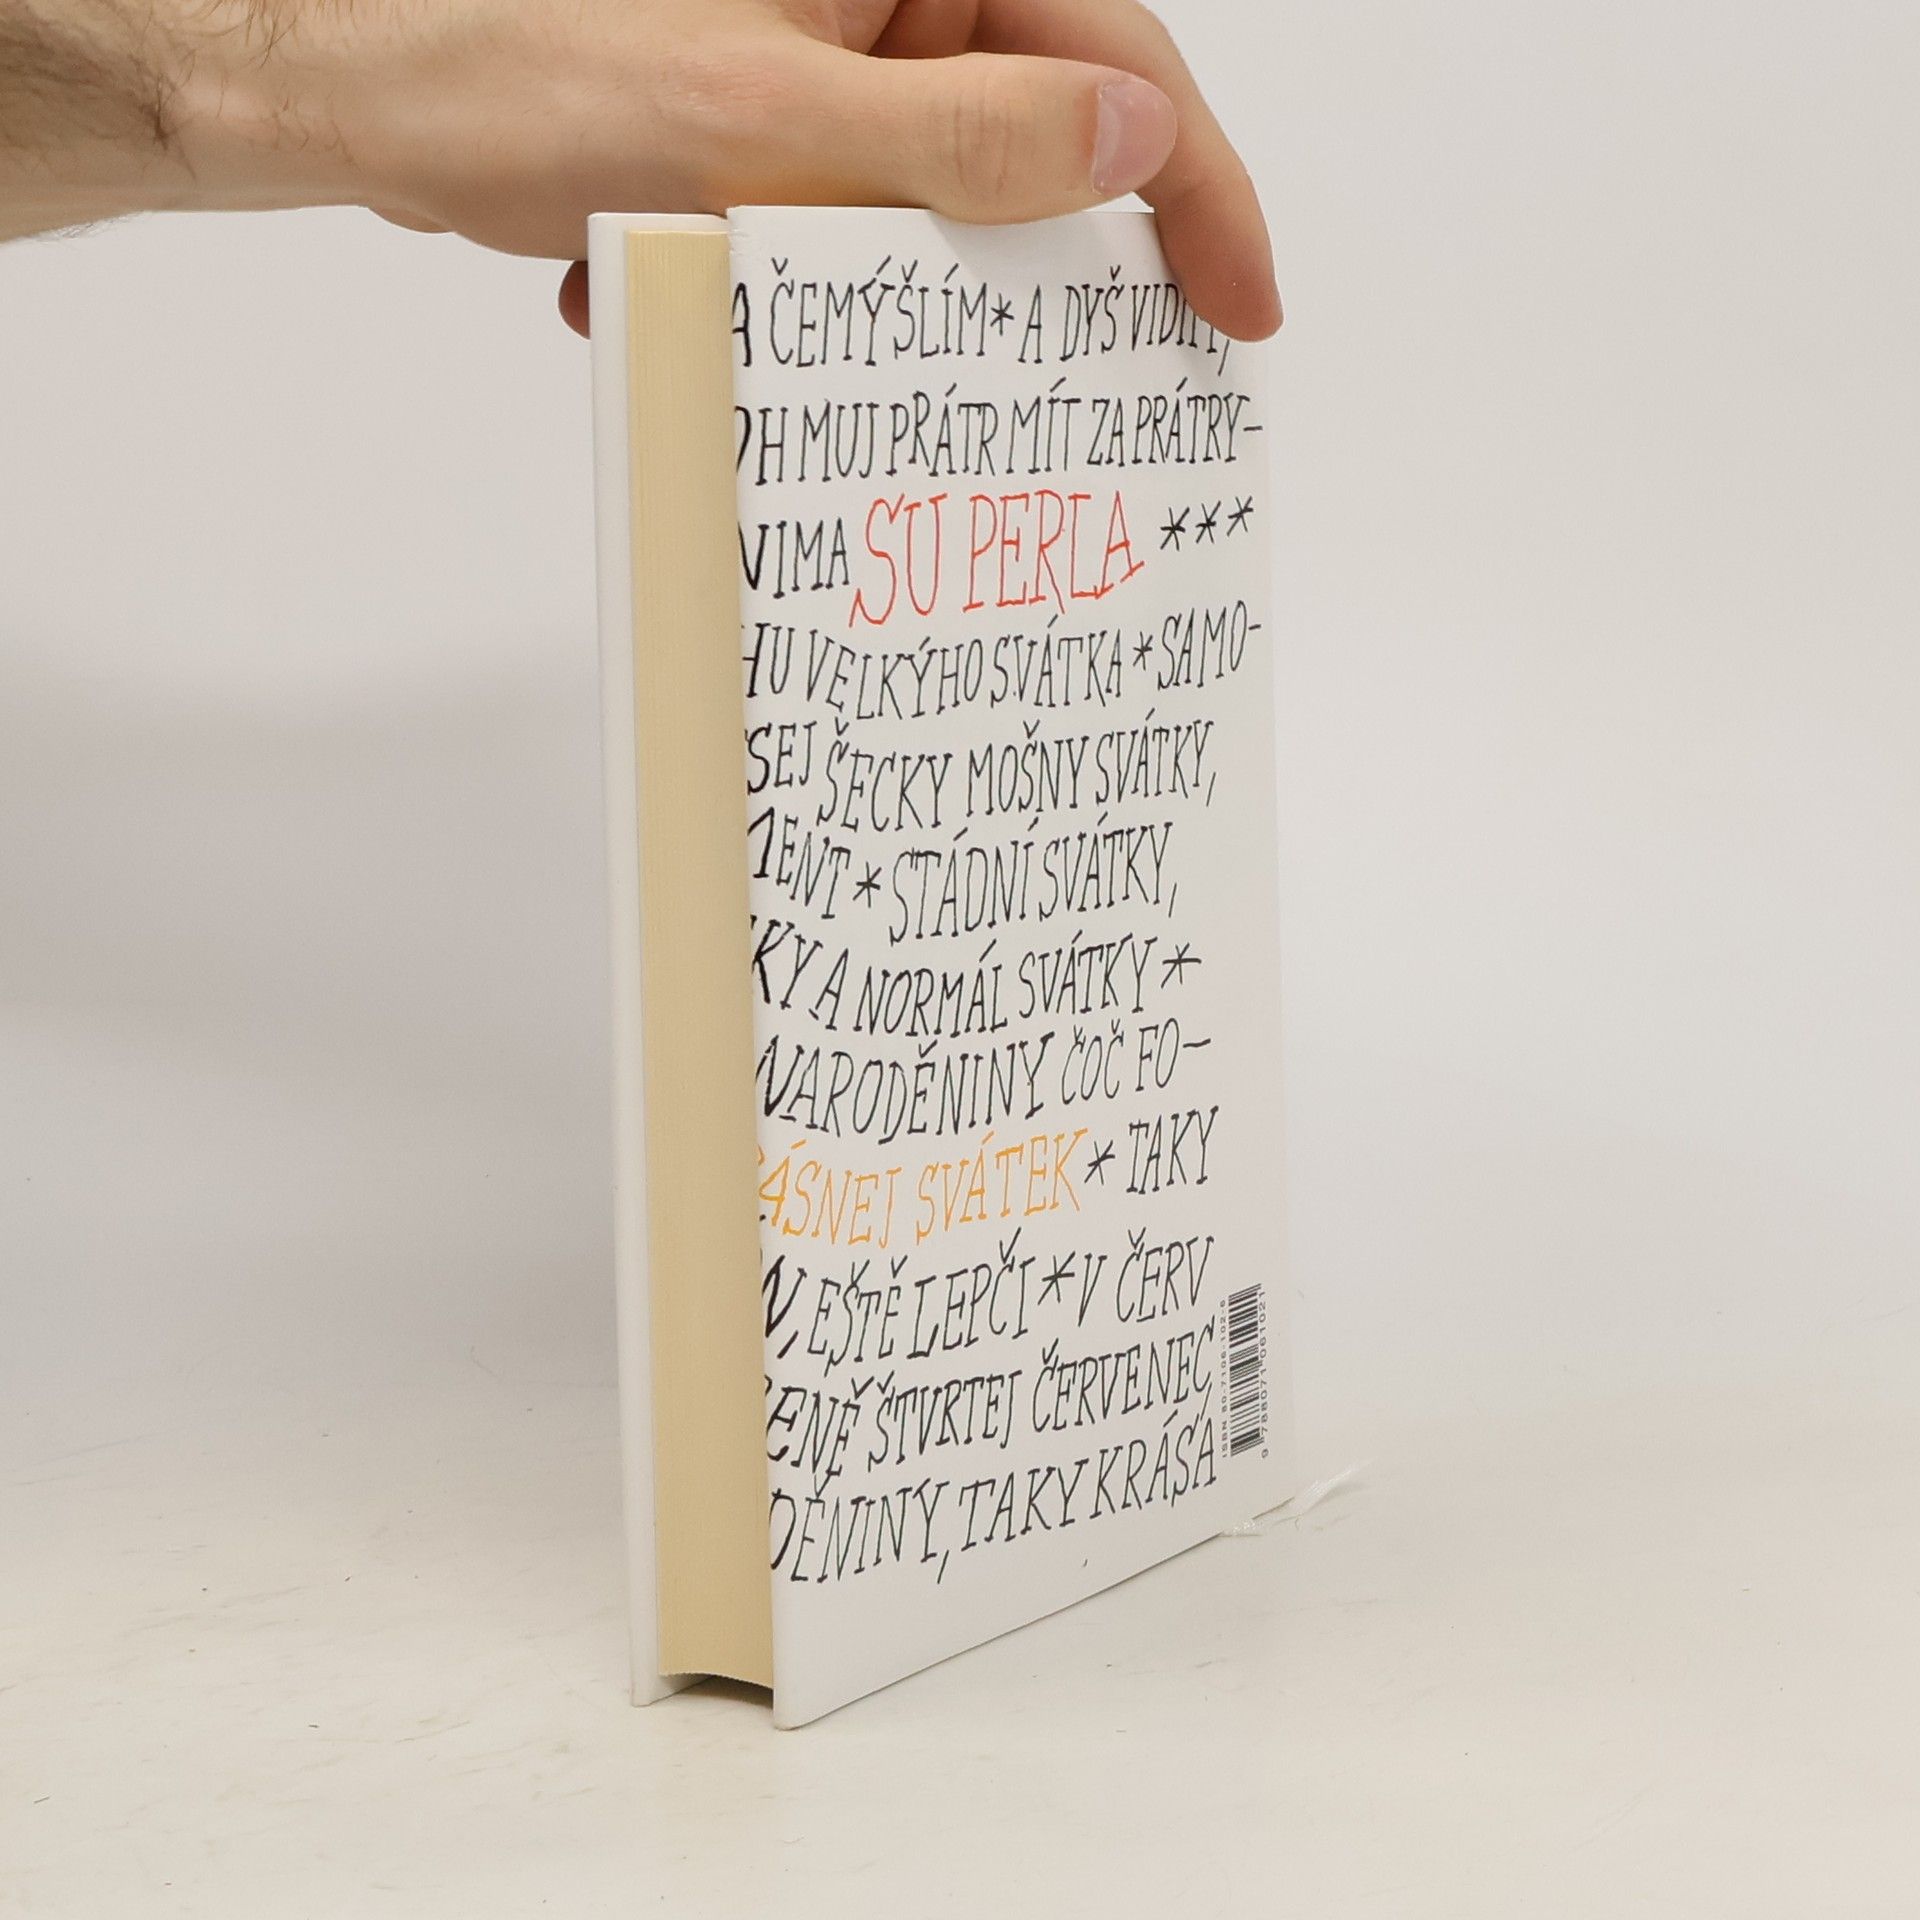 A ČEMÝŠLÍM * A DYŠ
H MUJ PRÁTR MÍT ZA PRÁTRY-
IMA SU PERLA ***
HU VELKÝHO SVÁTKA * SAMO-
SEJ ŠECKY MOŠNY SVÁTKY,
ENT * STÁDNÍ SVÁTKY,
KY A NORMÁL SVÁTKY *
NARODĚNINY ČOČ FO-
ÁSNEJ SVÁTEK * TAKY
N, EŠTĚ LEPČI * V ČERV
ENĚ ŠTVRTEJ ČERVENEC,
DĚNINY, TAKY KRÁSÁ
ISBN 80-7106-102-6
9 788071 061021